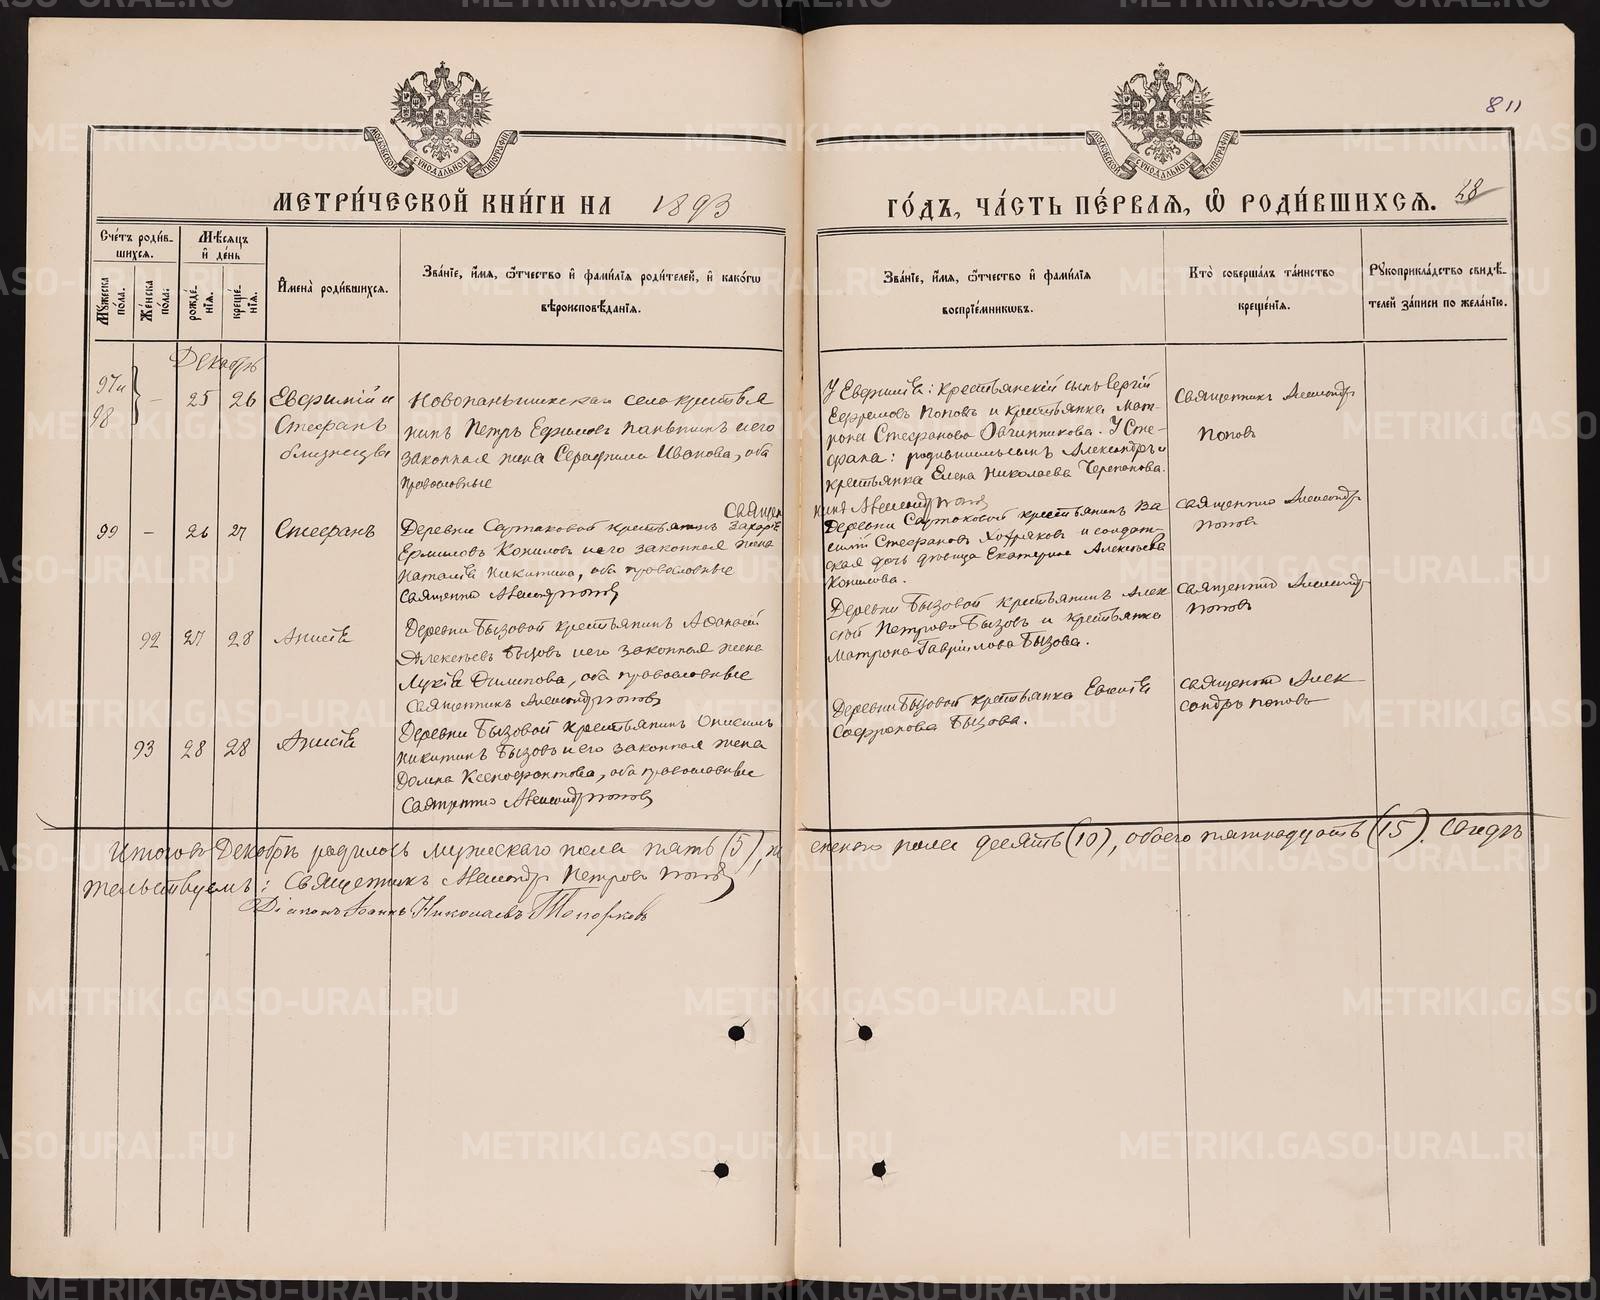 811
МОСКОВСКОЙ СѴНОДАЛЬНОЙ ТИПОГРАФІИ
МОСКОВСКОЙ СѴНОДАЛЬНОЙ ТИПОГРАФІИ
МЕТРИ́ЧЕСКОЙ КНИ́ГИ НА 1893
ГО́ДЪ, ЧА́СТЬ ПЕ́РВАЯ, Ѡ҆ РОДИ́ВШИХСЯ. 28
Сче́тъ роди́в-
шихся.
Мꙋжеска пола.
Же́нска пола.
Мѣ́сяцъ
и҆ де́нь
рожде́нїя.
креще́нїя.
И҆мена̀ роди́вшихся.
Зва́нїе, и҆́мя, ѻ҆́тчество и҆ фами́лїя роди́телей, и҆ како́гѡ
вѣроисповѣ́данїя.
Зва́нїе, и҆́мя, ѻ҆́тчество и҆ фами́лїя
воспрїе́мникѡвъ.
Кто̀ соверша́лъ та́инство
креще́нїя.
Рꙋкоприкла́дство свидѣ́-
телей за́писи по жела́нїю.
Декабрь
97 и
98
— 25 26
Евфимій и
Стефанъ
близнецы
Новопаньшинскаго села крестья
нинъ Петръ Ефимовъ Паньшинъ и его
законная жена Серафима Иванова, оба
православные
У Евфимія: крестьянскій сынъ Сергій
Ефремовъ Поповъ и крестьянка Мат-
рона Стефанова Овчинникова. У Сте-
фана: сынъ Александръ и
крестьянка Елена Николаева Черепанова.
Священникъ Александръ
Поповъ
Священ
никъ Александръ Поповъ
99 — 26 27 Стефанъ
Деревни крестьянинъ Захарій
Ермиловъ Копиловъ и его законная жена
Наталія Никитина, оба православные
Священникъ Александръ Поповъ
Деревни крестьянинъ Ва
силій Стефановъ Хохряковъ и солдат-
ская дочь дѣвица Екатерина Алексѣева
Копилова.
Священникъ Александръ
Поповъ
92 27 28 Анисія
Деревни Бызовой крестьянинъ Аѳанасій
Алексѣевъ Бызовъ и его законная жена
Лукія Филипова, оба православные
Священникъ Александръ Поповъ
Деревни Бызовой крестьянинъ Алек
сѣй Петровъ Бызовъ и крестьянка
Матрона Гаврилова Бызова.
Священникъ Александръ
Поповъ
93 28 28 Анисія
Деревни Бызовой крестьянинъ Онисимъ
Никитинъ Бызовъ и его законная жена
Домна Ксенофонтова, оба православные
Священникъ Александръ Поповъ
Деревни Бызовой крестьянка Евгенія
Софронова Бызова.
Священникъ Алек
сандръ Поповъ
Итого въ Декабрѣ родилось мужескаго пола пять (5), ж
енскаго пола десять (10), обоего пятнадцать (15). Свидѣ
тельствуемъ: Священникъ Александръ Петровъ Поповъ
Діаконъ Іоаннъ Николаевъ Топорковъ
METRIKI.GASO-URAL.RU